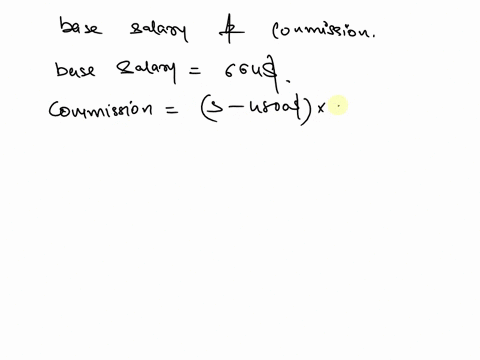 base salary & commission.
base salary = 664$.
Commission = (s - 4800$) ×